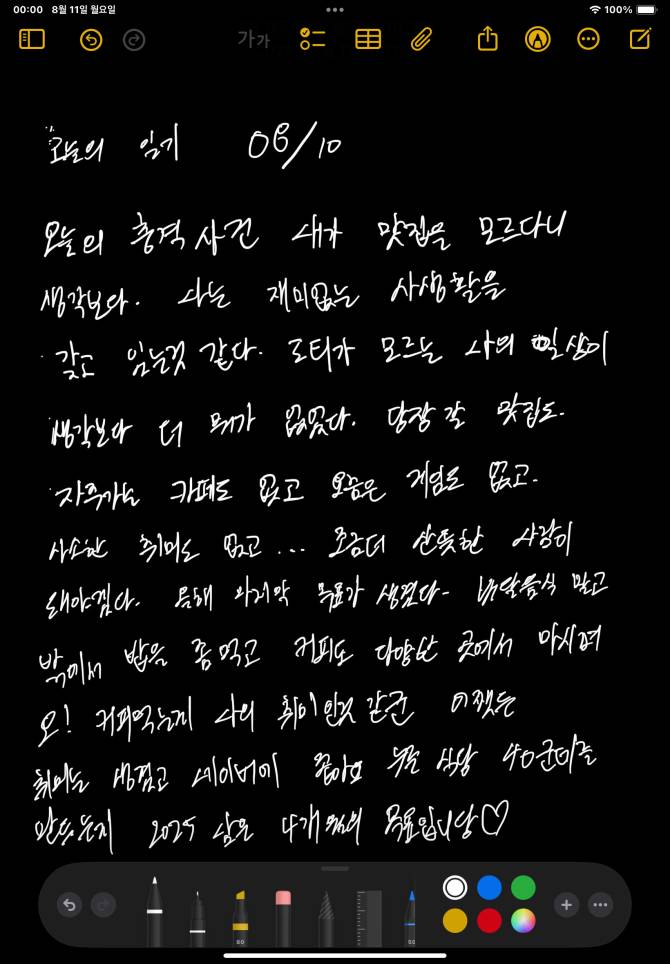 00:00 8월 11일 월요일
100%
가가
오늘의 일기 08/10
오늘의 충격 사건 내가 맛집을 모르다니
생각보다. 나는 재미없는 사생활을
갖고 있는것 같다. 모르는 나의 일상이
생각보다 더 뭐가 없었다. 당장 갈 맛집도.
자주가는 카페도 없고 요즘은 게임도 없고.
사소한 취미도 없고 ... 조금더 산뜻한 사람이
돼야겠다. 올해 마지막 목표가 생겼다. 배달음식 말고
밖에서 밥을 좀 먹고 커피도 다양한 곳에서 마시며
오! 커피먹는게 나의 취미인것 같군 어쨌든
취미는 생겼고 네이버에 좋아요 누른 식당 40군데를
만드는지 2025 남은 4개월의 목표입니당♡
80
50